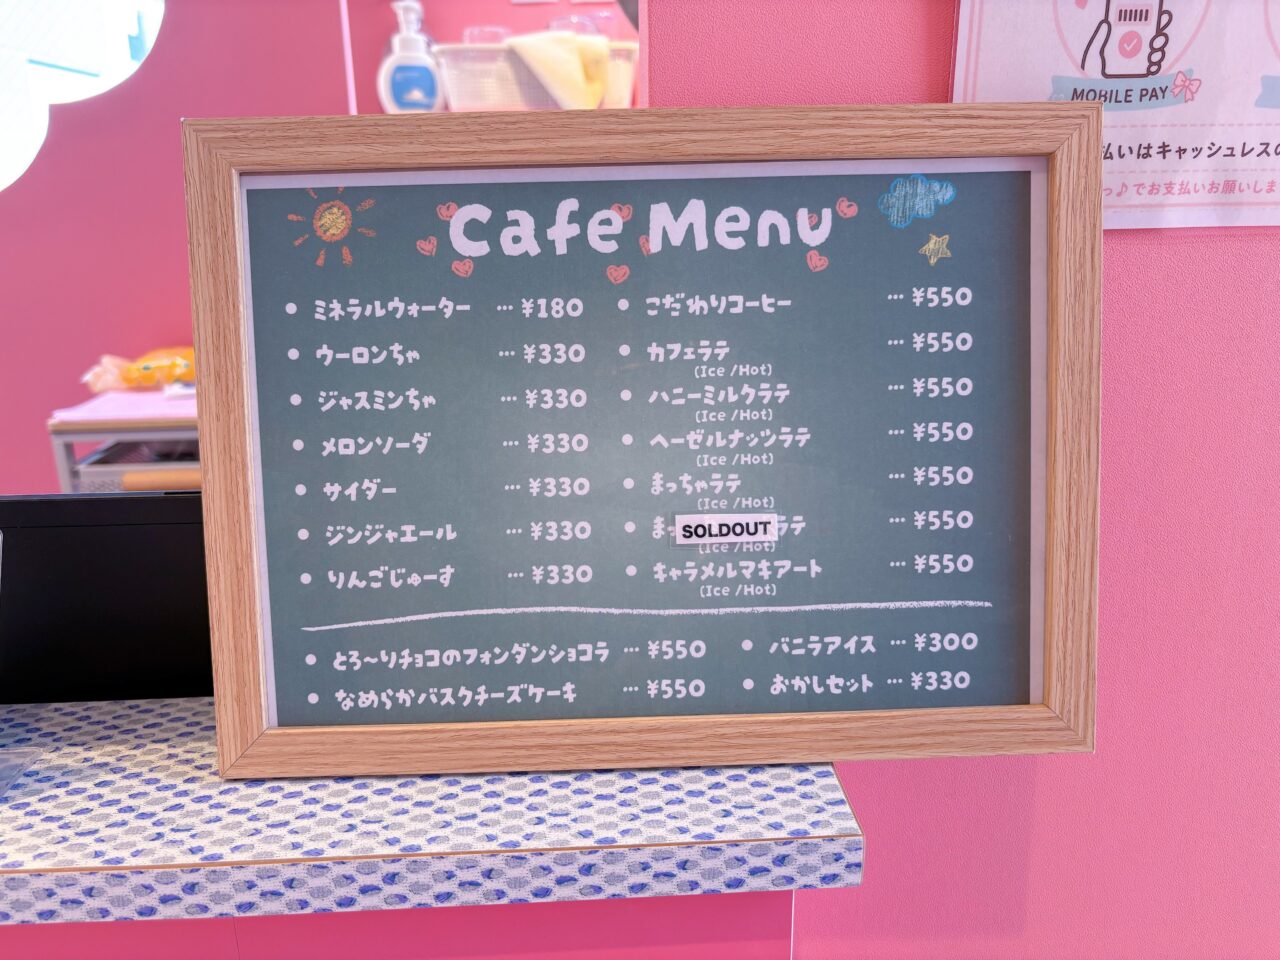 MOBILE PAY
払いはキャッシュレスの
っ♪でお支払いお願いしま
Cafe Menu
● ミネラルウォーター … ¥180
● ウーロンちゃ … ¥330
● ジャスミンちゃ … ¥330
● メロンソーダ … ¥330
● サイダー … ¥330
● ジンジャエール … ¥330
● りんごじゅーす … ¥330
● こだわりコーヒー … ¥550
● カフェラテ … ¥550
(Ice /Hot)
● ハニーミルクラテ … ¥550
(Ice /Hot)
● ヘーゼルナッツラテ … ¥550
(Ice /Hot)
● まっちゃラテ … ¥550
(Ice /Hot)
● まっ SOLDOUT ラテ … ¥550
(Ice /Hot)
● キャラメルマキアート … ¥550
(Ice /Hot)
● とろ〜りチョコのフォンダンショコラ … ¥550
● なめらかバスクチーズケーキ … ¥550
● バニラアイス … ¥300
● おかしセット … ¥330